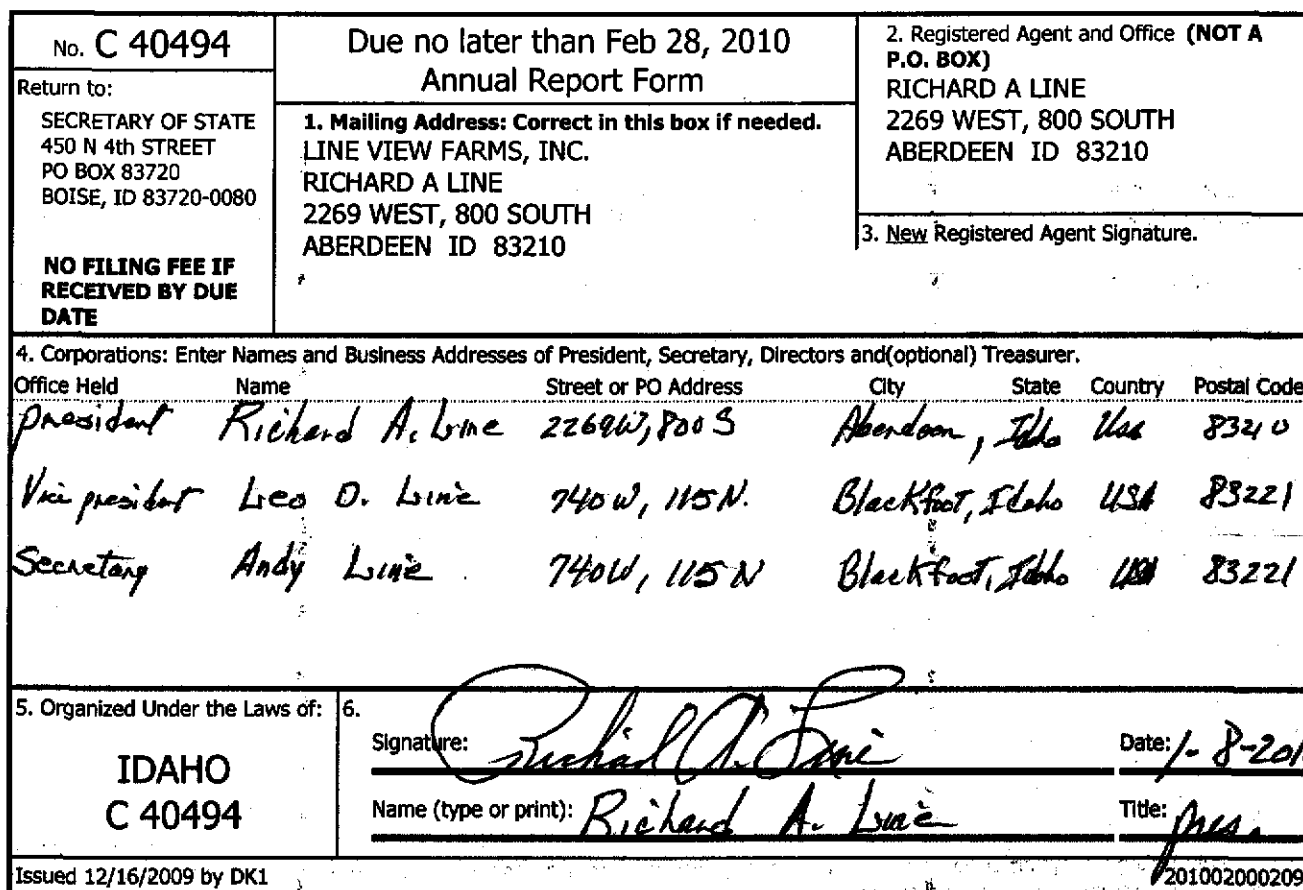 No. C 40494
Return to:
SECRETARY OF STATE
450 N 4th STREET
PO BOX 83720
BOISE, ID 83720-0080
NO FILING FEE IF
RECEIVED BY DUE
DATE
Due no later than Feb 28, 2010
Annual Report Form
1. Mailing Address: Correct in this box if needed.
LINE VIEW FARMS, INC.
RICHARD A LINE
2269 WEST, 800 SOUTH
ABERDEEN ID 83210
2. Registered Agent and Office (NOT A
P.O. BOX)
RICHARD A LINE
2269 WEST, 800 SOUTH
ABERDEEN ID 83210
3. New Registered Agent Signature.
4. Corporations: Enter Names and Business Addresses of President, Secretary, Directors and(optional) Treasurer.
Office Held Name Street or PO Address City State Country Postal Code
president Richard A. Line 2269W, 800 S Aberdeen, Idaho Usa 83210
Vice president Leo D. Line 740 W, 115 N. Blackfoot, Idaho USA 83221
Secretary Andy Line 740W, 115 N Blackfoot, Idaho USA 83221
5. Organized Under the Laws of:
IDAHO
C 40494
6.
Signature: Richard A. Line Date: 1-8-201
Name (type or print): Richard A. Line Title: pres.
Issued 12/16/2009 by DK1 201002000209